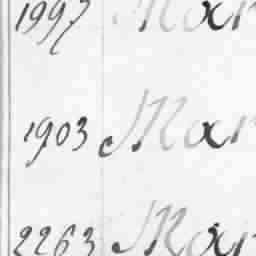 1997 Mar
1903 Mar
2263 Mar